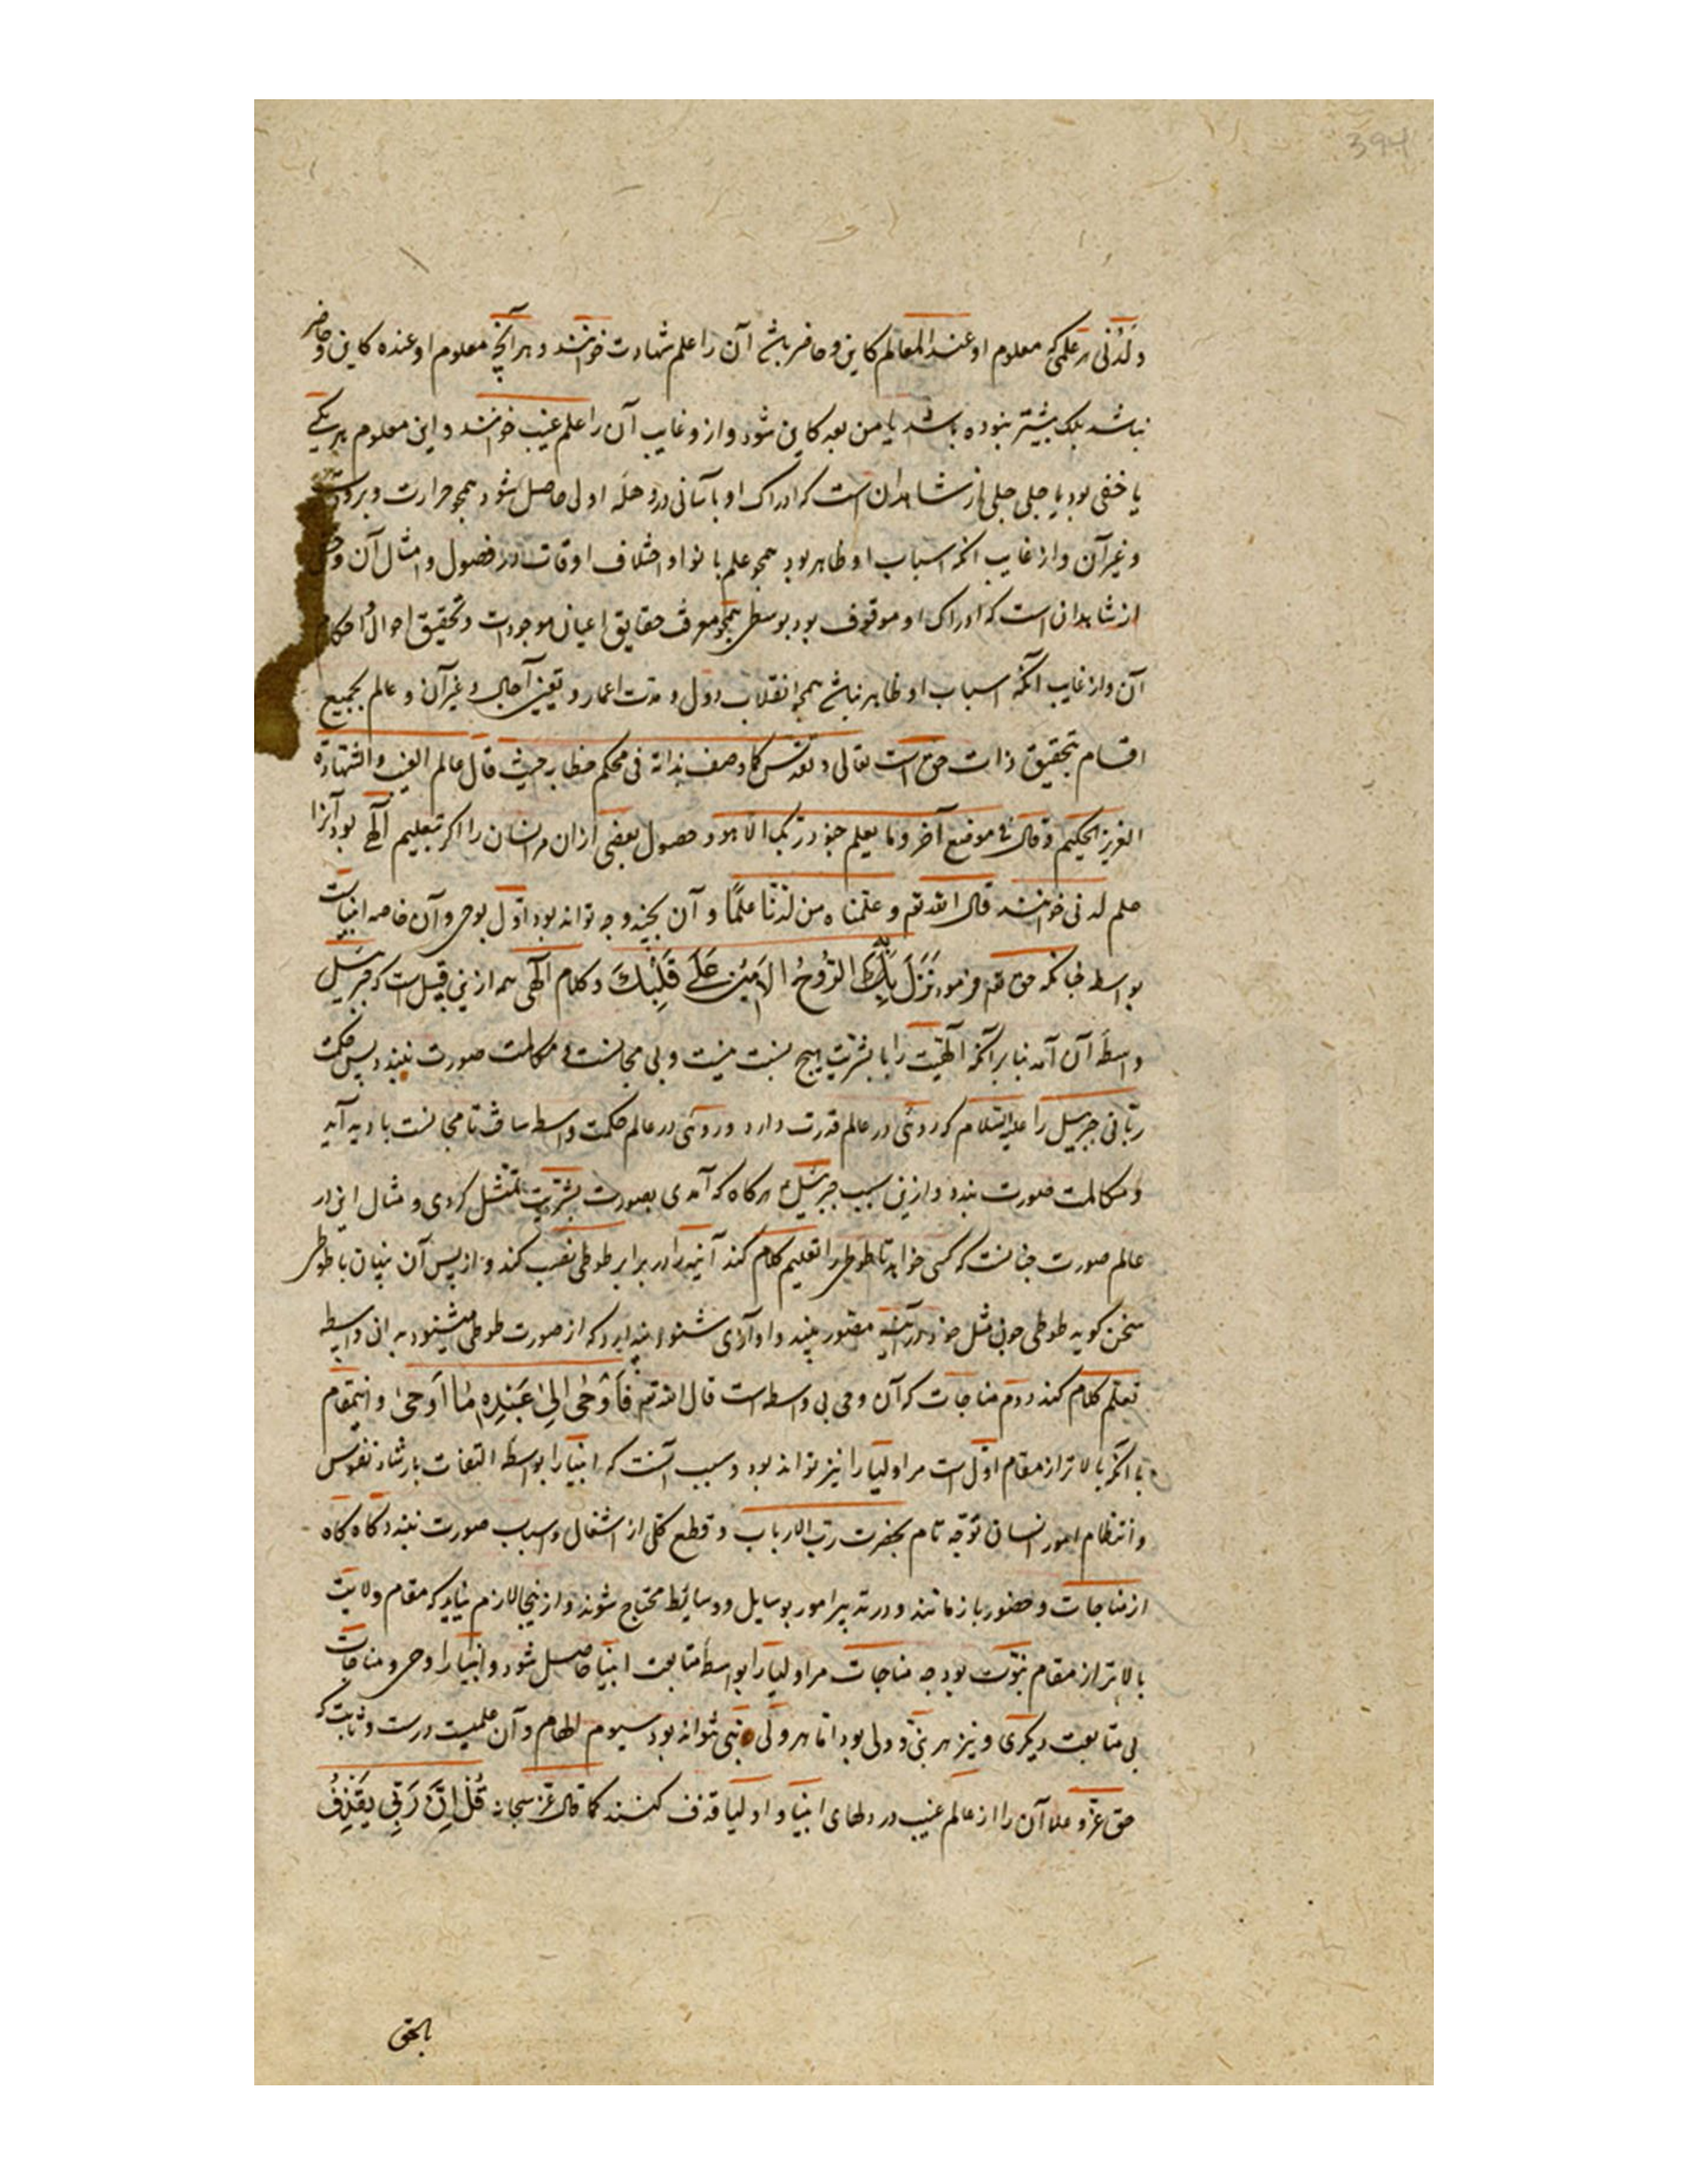 394
و لدنی هر علمی که معلوم او عند العالم کاین و حاضر باشد آن را علم شهادت خوانند و هر آنچه معلوم او عنده کاین و حاضر
نباشد بلک بیشتر نبوده باشد یا من بعد کاین شود و از و غایب آن را علم غیب خوانند و این معلوم هر یکی
یا خفی بود یا جلی جلی از شاهد ان است که ادراک او باسانی در وهله اولی حاصل شود همچو حرارت و برودت
و غیر آن و از غایب انکه اسباب او ظاهر بود همچو علم با نوا و اختلاف اوقات در فصول و امثال آن و خفی
از شاهد ان است که ادراک او موقوف بود بوسطی همچو معرفت حقایق اعیان موجودات و تحقیق احوال و احکام
آن و از غایب آنکه اسباب او ظاهر نباشد همچو انقلاب دول و مدت اعمار و تعیین آجال و غیر آن و عالم بجمیع
اقسام بتحقیق ذات حق است تعالی و تقدس کما وصف بذاته فی محکم خطابه حیث قال عالم الغیب و الشهادة
العزیز الحکیم و قال فی موضع آخر و ما یعلم جنود ربک الا هو و حصول بعضی از ان مر انسان را اکر بتعلیم آلهی بود آنرا
علم لدنی خوانند قال الله تعـ و علمناه من لدنا علمًا و آن بچند وجه تواند بود اول بوحی و آن خاصه انبیاست
بواسطه چنانکه حق تعـ فرمود نَزَلَ بِهِ الرُّوحُ الاَمینُ عَلَی قَلْبِکَ و کلام آلهی هم ازین قبیل است که جبرئیل
واسطهٔ آن آمد بنا بر آنکه آلهیت را با بشریت هیچ نسبت نیست و بی مجانست مکالمت صورت نبندد پس حکمت
ربانی جبرییل را علیه السلام که روئی در عالم قدرت دارد و روئی در عالم حکمت واسطه ساخت تا مجانست بادید آید
و مکالمت صورت بندد و ازین سبب جبرئیل هر کاه که آمدی بصورت بشریت تمثل کردی و مثال این در
عالم صورت چنانست که کسی خواهد تا طوطی را تعلیم کلام کند آینه را در برابر طوطی نصب کند و از پس آن پنهان با طوطی
سخن کوید طوطی چون مثل خود در آینه مصور بیند و او آوازی شنود پندارد که از صورت طوطی میشنود بدان واسطه
تعلم کلام کند دوم مناجات که آن وحی بی واسطه است قال الله تعـ فَاَوْحٰی اِلیٰ عَبْدِهِ مٰا اَوحٰی و اینمقام
با آنکه بالاتر از مقام اول است مر اولیا را نیز تواند بود و سبب آنست که انبیا را بواسطهٔ التفات بارشاد نفوس
و انتظام امور انسان توجه تام بحضرت رب الارباب و قطع کلی از اشغال و اسباب صورت نبندد کاه کاه
از مناجات و حضور باز مانند و در تدبیر امور بوسایل و وسائط محتاج شوند و از ینجا لازم نیاید که مقام ولایت
بالاتر از مقام نبوت بود چه مناجات مر اولیا را بواسطهٔ متابعت انبیا حاصل شود و انبیا را وحی و مناجات
بی متابعت دیکری و نیز هر نبی و ولی بود اما هر ولی نبی نتواند بود سیوم الهام و آن علمیست درست و ثابت که
حق عز و علا آن را از عالم غیب در دلهای انبیا و اولیا قذف کنند کما قال عز سبحانه قُلْ اِنَّ رَبّی یَقْذِفُ
بالحق